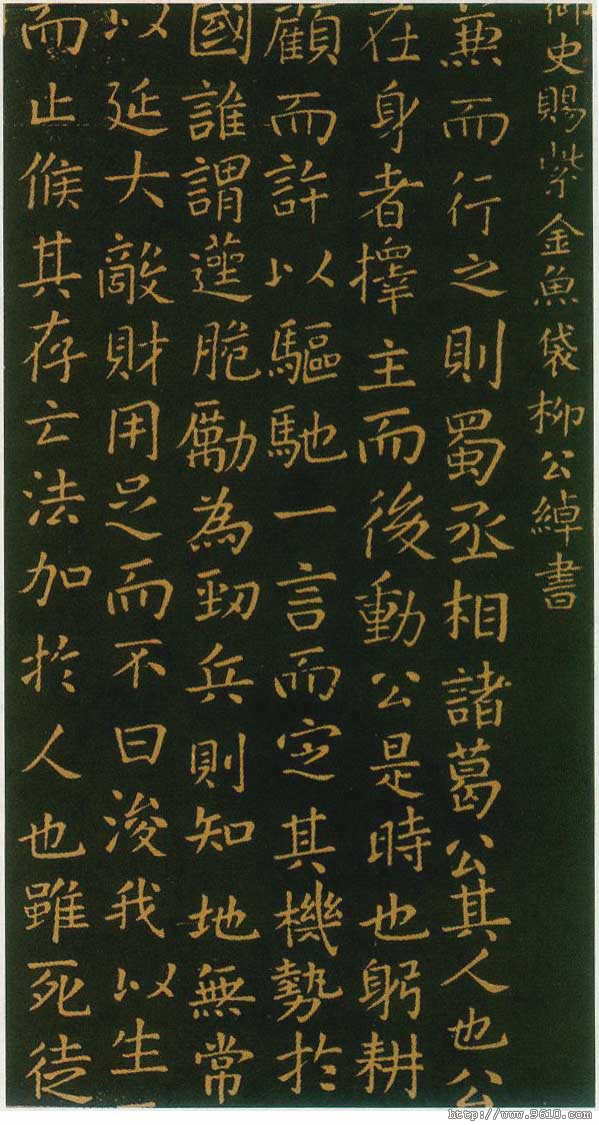 御史賜紫金魚袋柳公綽書
兼而行之則蜀丞相諸葛公其人也公
在身者擇主而後動公是時也躬耕
顧而許以驅馳一言而定其機勢於
國誰謂脆勵為勁兵則知地無常
以延大敵財用足而不曰浚我以生
而止候其存亡法加於人也雖死徒
http://www.9610.com